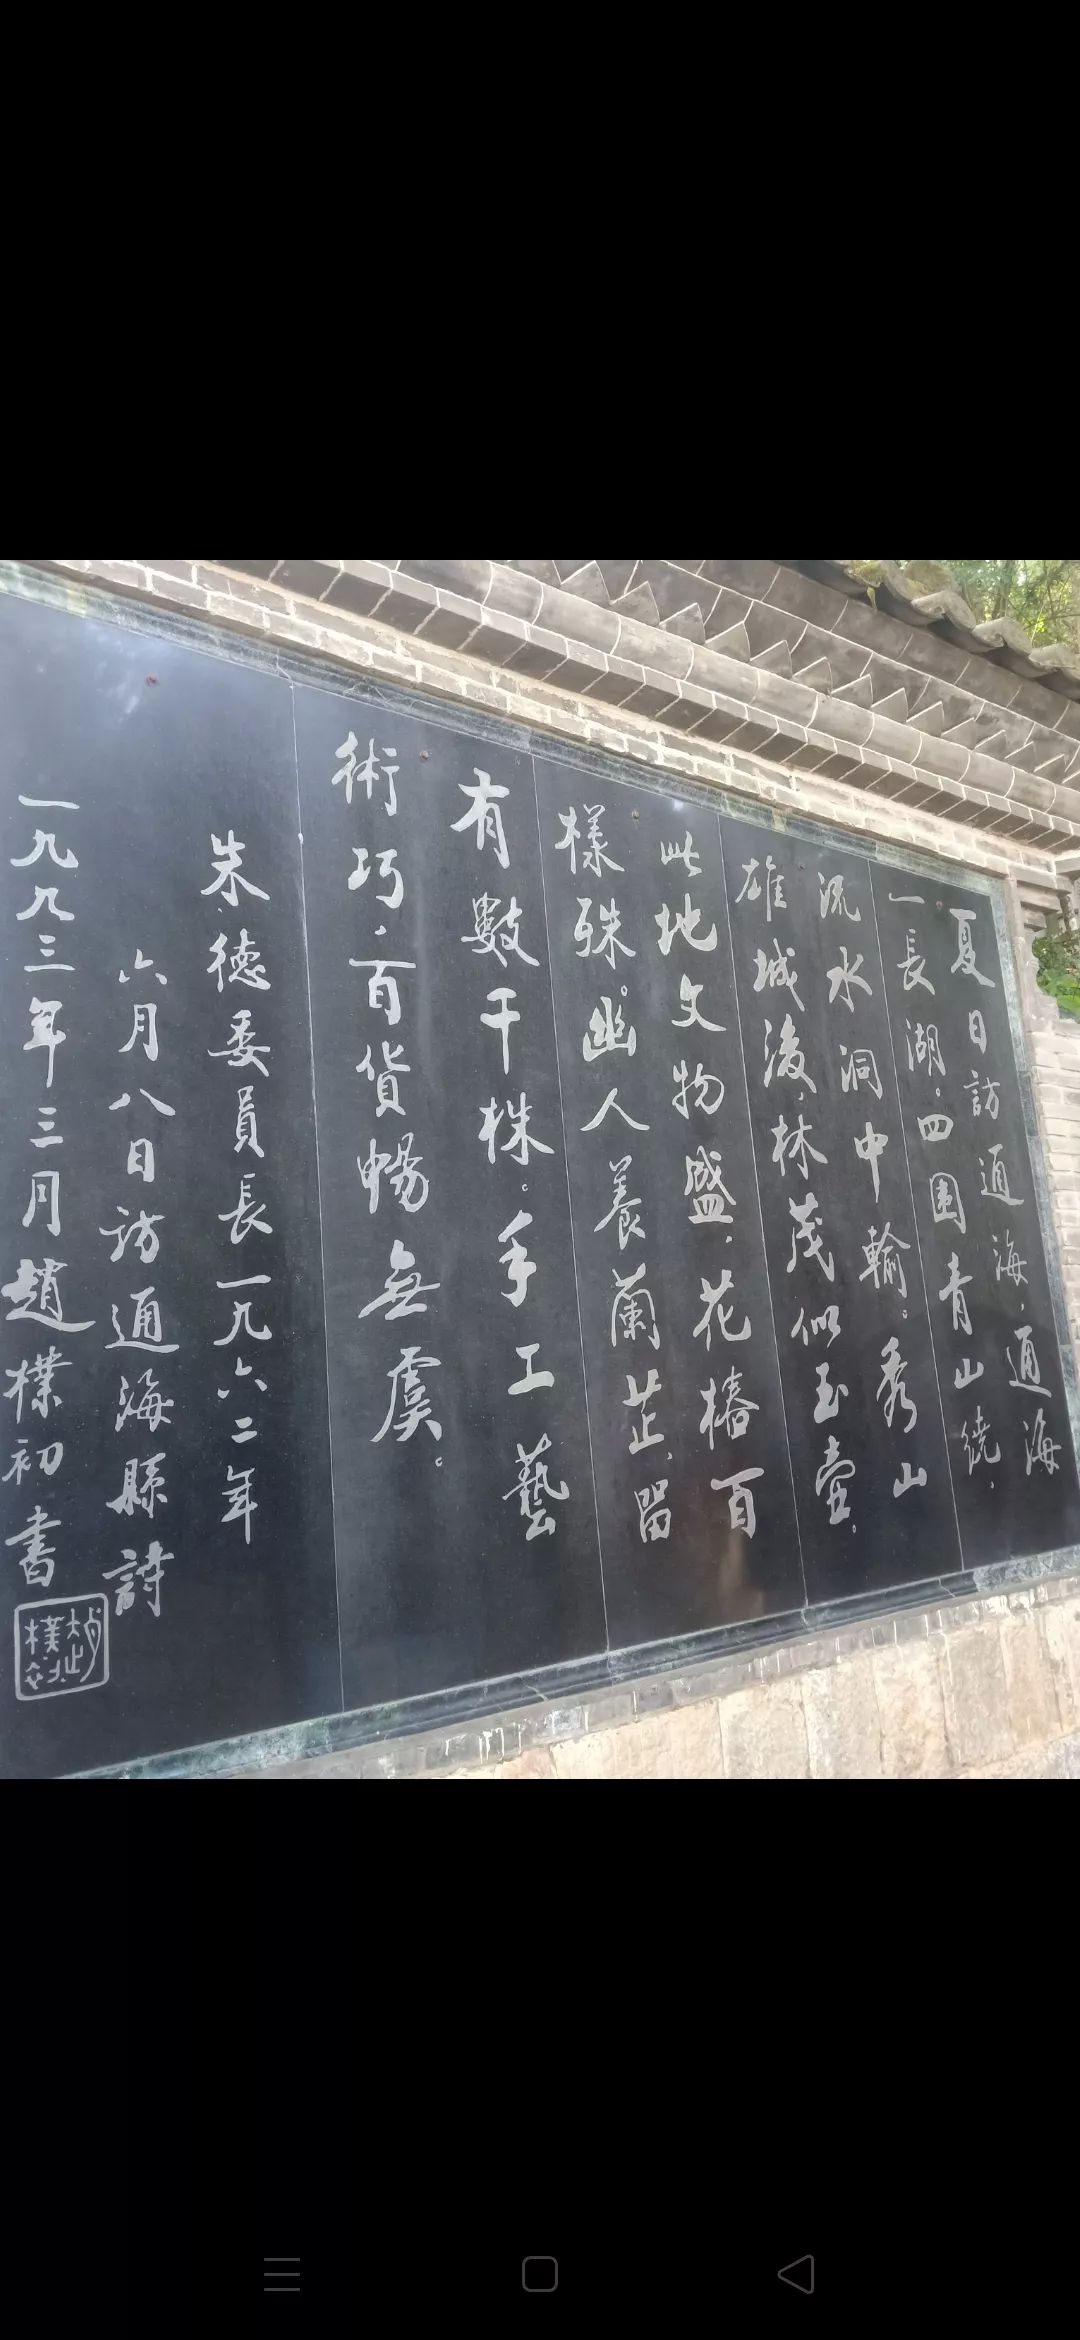 夏日訪通海，通海
一長湖，四围青山繞，
流水洞中輸。秀山
雄城後，林茂似玉壺。
此地文物盛，花椿百
樣殊。幽人養蘭芷，留
有數千株。手工藝
術巧，百貨暢無虞。
朱德委員長一九六二年
六月八日訪通海縣詩
一九九三年三月趙樸初書
趙樸初